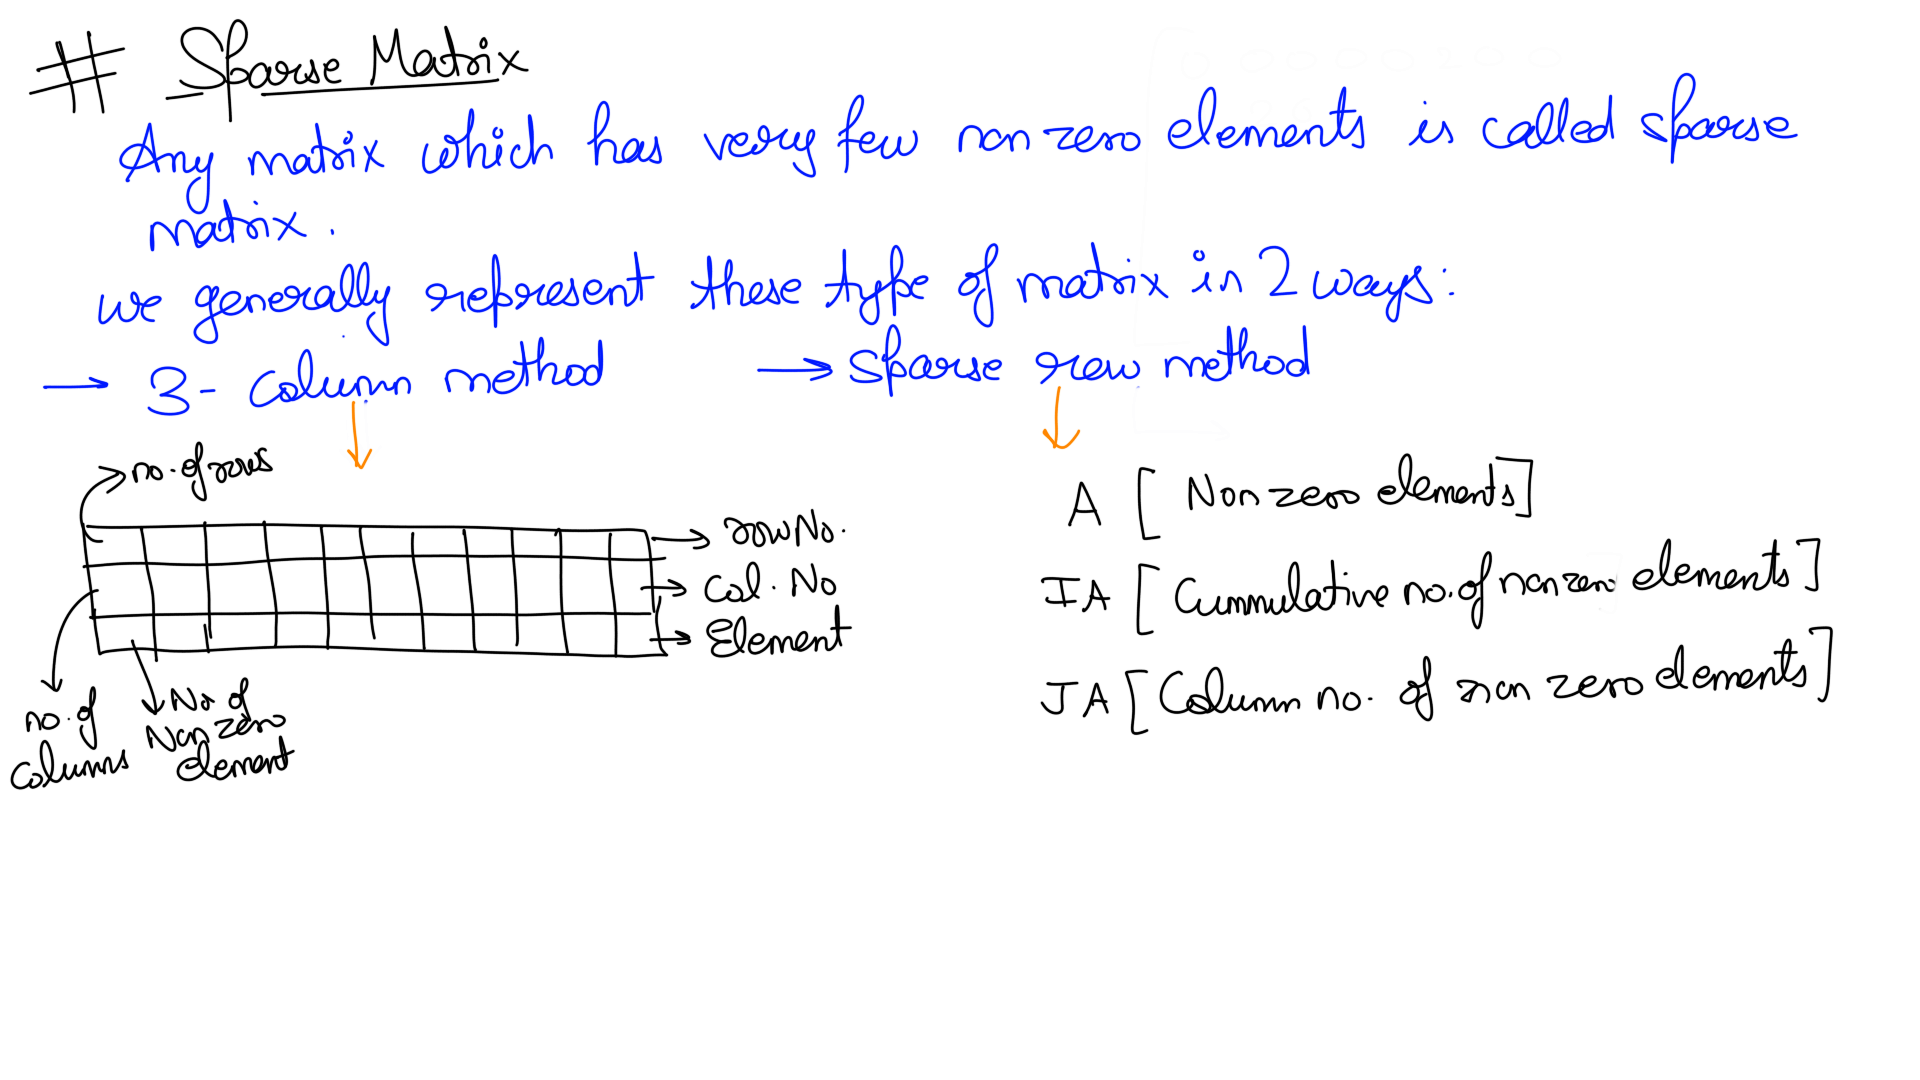 # Sparse Matrix
Any matrix which has very few non zero elements is called sparse
matrix.
we generally represent these type of matrix in 2 ways:
→ 3- column method → Sparse row method
no. of rows
row No.
Col. No
Element
no. of
columns
No of
Non zero
element
A [ Non zero elements]
IA [ Cummulative no. of non zero elements ]
JA [ Column no. of non zero elements ]